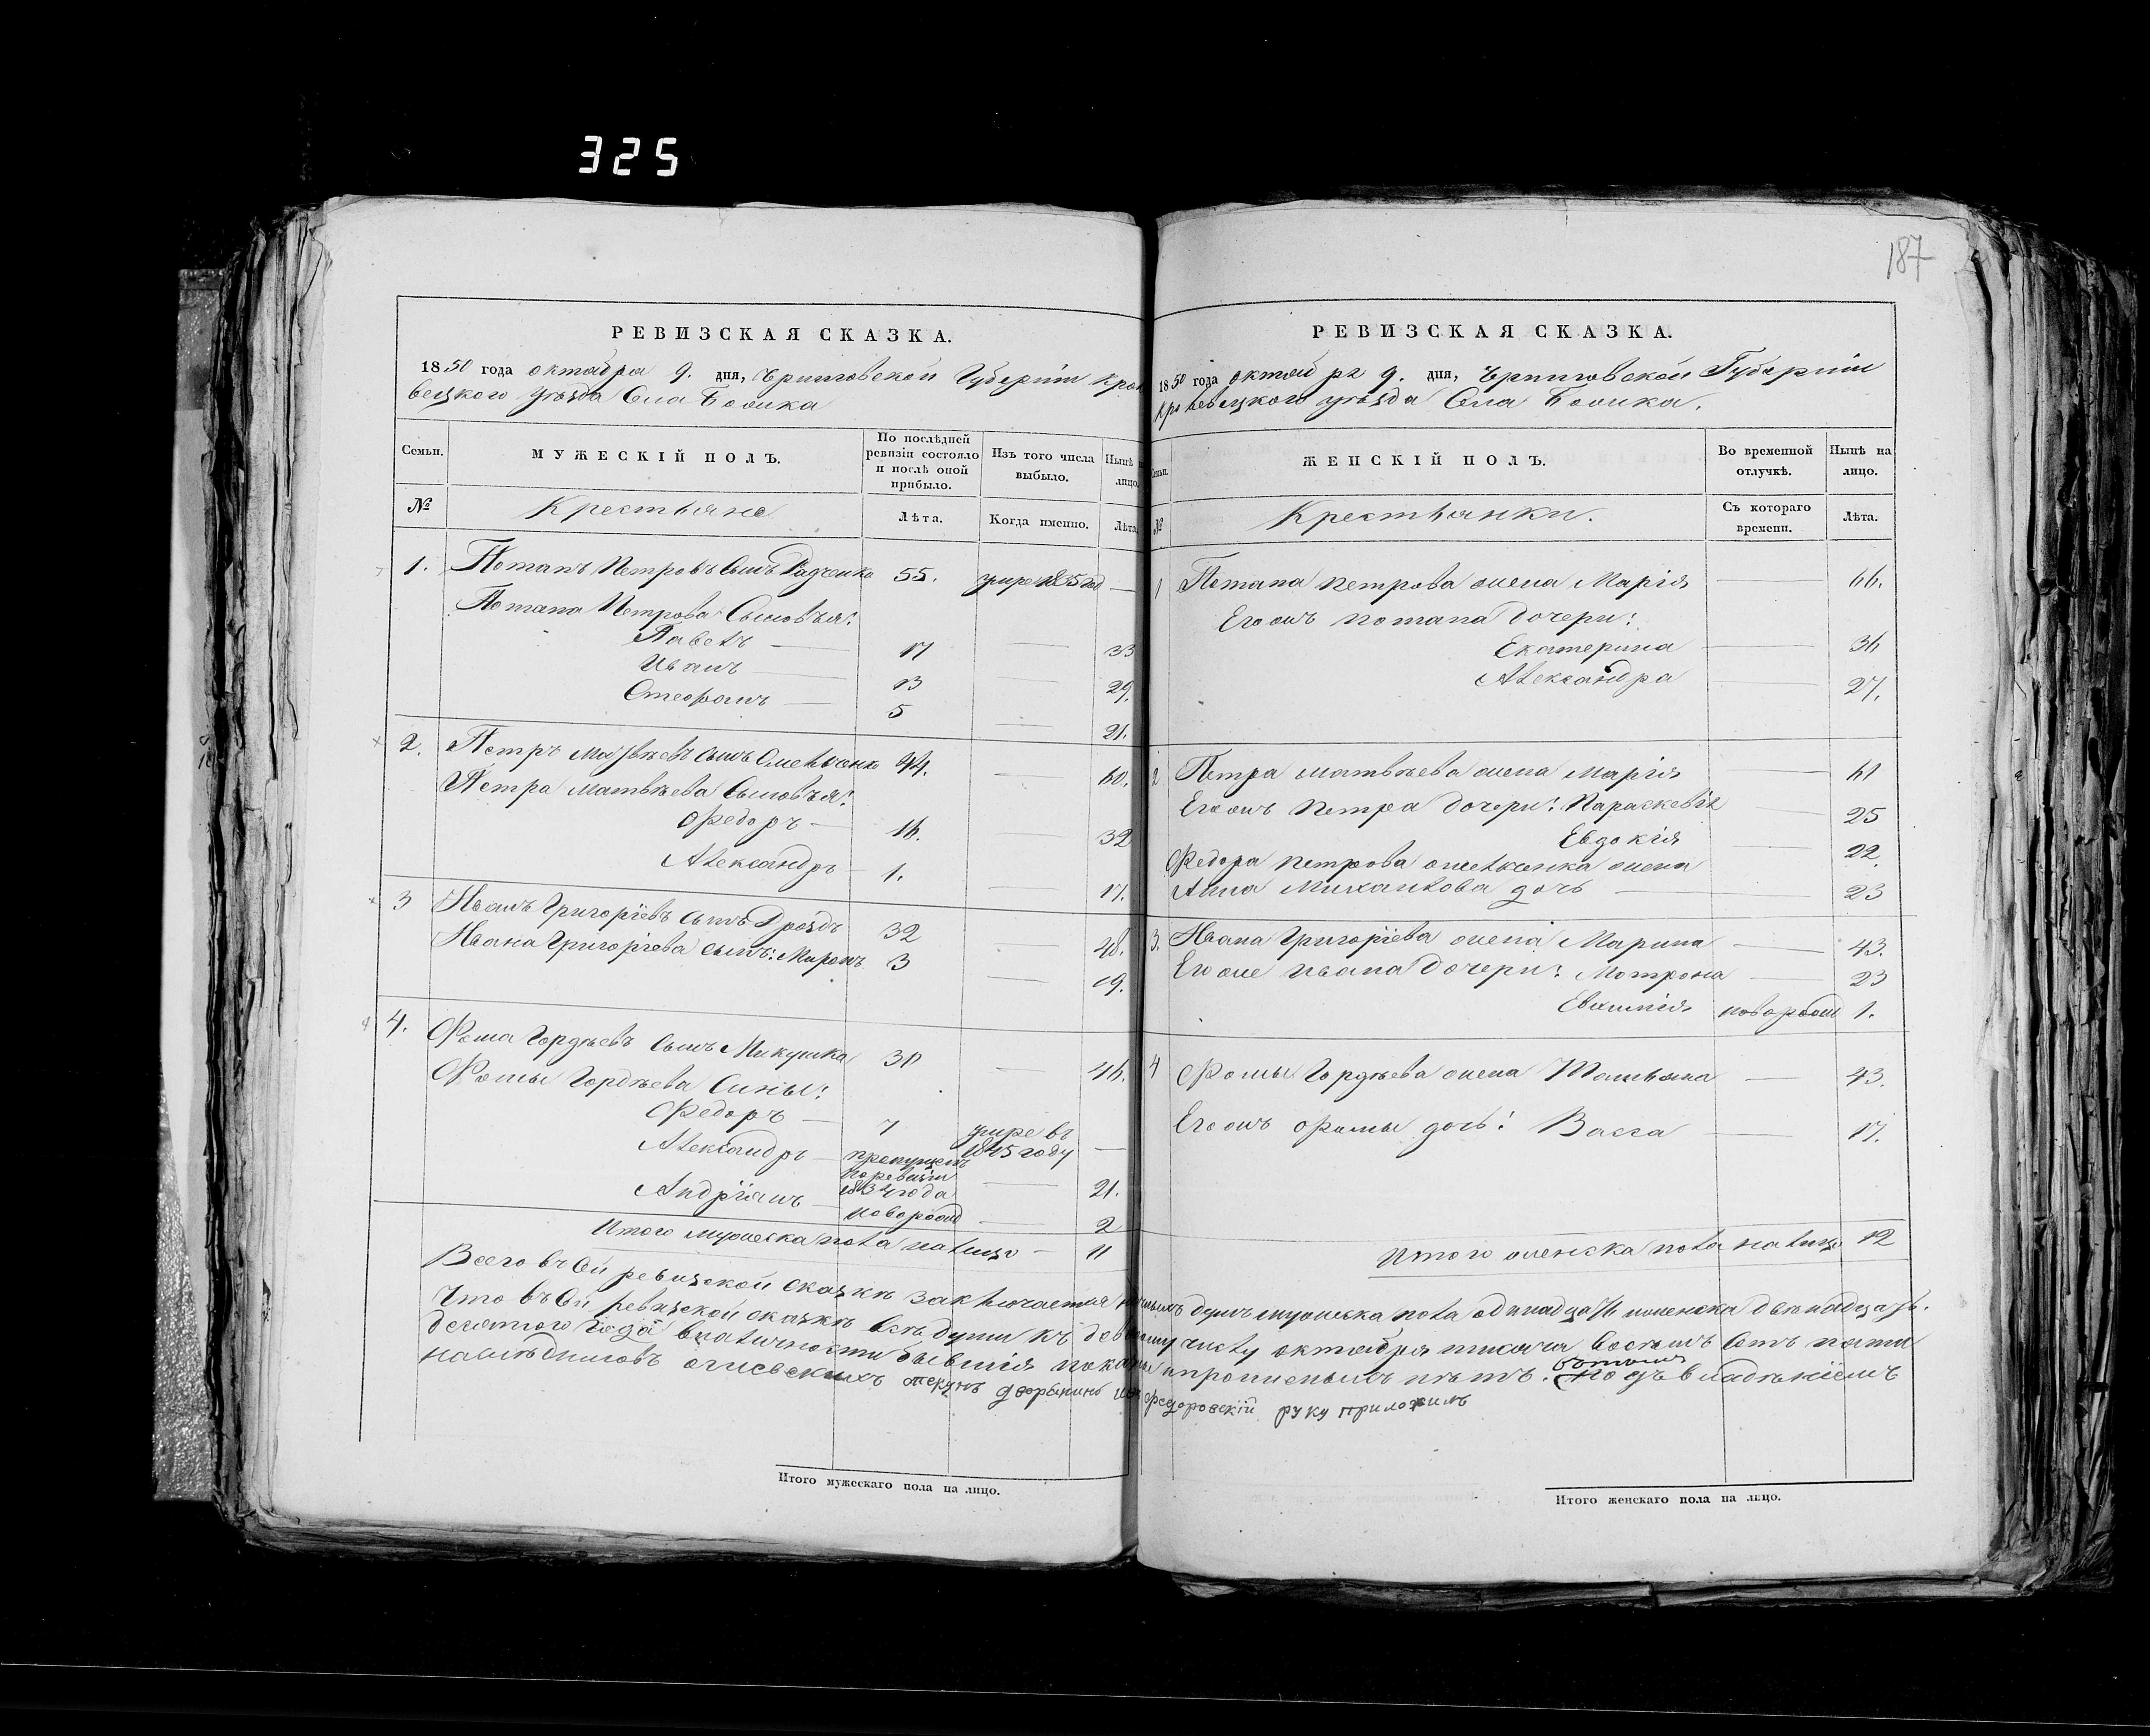 325
187
РЕВИЗСКАЯ СКАЗКА.
1850 года октабра 9. дня, Черниговской Губернiи Кроле
вецкого уезда Села
МУЖЕСКІЙ ПОЛЪ.
Семьи.
По послѣдней
ревизіи состояло
и послѣ оной
прибыло.
Изъ того числа
выбыло.
Нынѣ на
лицо.
№
Крестьяне
Лѣта.
Когда именно.
Лѣта.
1. Потапъ Петровъ Сынъ Радченко 55. умре 1835 год —
Потапа Петрова Сыновья:
Павелъ — 17 — 33
Иванъ 13 — 29.
Стефанъ — 5 — 21.
2. Петръ Матвѣевъ сынъ 44. — 60.
Петра Матвѣева Сыновья:
Федоръ — 16. — 32
Александръ 1. — 17.
3 Иванъ Григорiевъ Сынъ Дроздъ 32 — 48.
Ивана Григорiева сынъ: Миронъ 3 — 19.
4. Фома Гордѣевъ Сынъ Микушка 30 — 46.
Фомы Гордѣева Сины:
Федоръ — 7 умре въ
1845 году —
Александръ — пропущенъ
по ревизiи
1834 года — 21.
Андрiянъ новорожд — 2
Итого мужеска пола налицо — 11
РЕВИЗСКАЯ СКАЗКА.
1850 года октобра 9. дня, Черниговской Губернiи
Кролевецкого уезда Села
Семьи.
ЖЕНСКІЙ ПОЛЪ.
Во временной
отлучкѣ.
Нынѣ на
лицо.
№
Крестьянки.
Съ котораго
времени.
Лѣта.
1 Потапа Петрова жена Марiя — 66.
Егожъ Потапа дочери:
Екатерина — 36
Александра — 27.
2 Петра Матвѣева жена Марiя — 61
Егожъ Петра дочери: Параскевiя — 25
Евдокiя — 22.
Федора Петрова жена
Анна Михайлова дочь — 23
3. Ивана Григорiева жена Марина — 43.
Егоже Ивана дочери: Мотрона — 23
новорожд 1.
4 Фомы Гордѣева жена Татьяна — 43.
Егожъ Фомы дочь: Васса — 17.
Итого женска пола налицо 12
Всего въ сей ревизской сказкѣ заключается наличныхъ душъ мужеска пола одинадцать и женска двенадцать.
Что въ сей ревизской сказкѣ всѣ души къ девятому числу октября тисяча восемъ сотъ пяти
десятого года въ наличности бывшiя показаны и прописныхъ нѣтъ. Подъ владѣнiемъ
наслѣдниковъ дворянинъ Федоровскiй руку приложилъ
Итого мужескаго пола на лицо.
Итого женскаго пола на лицо.